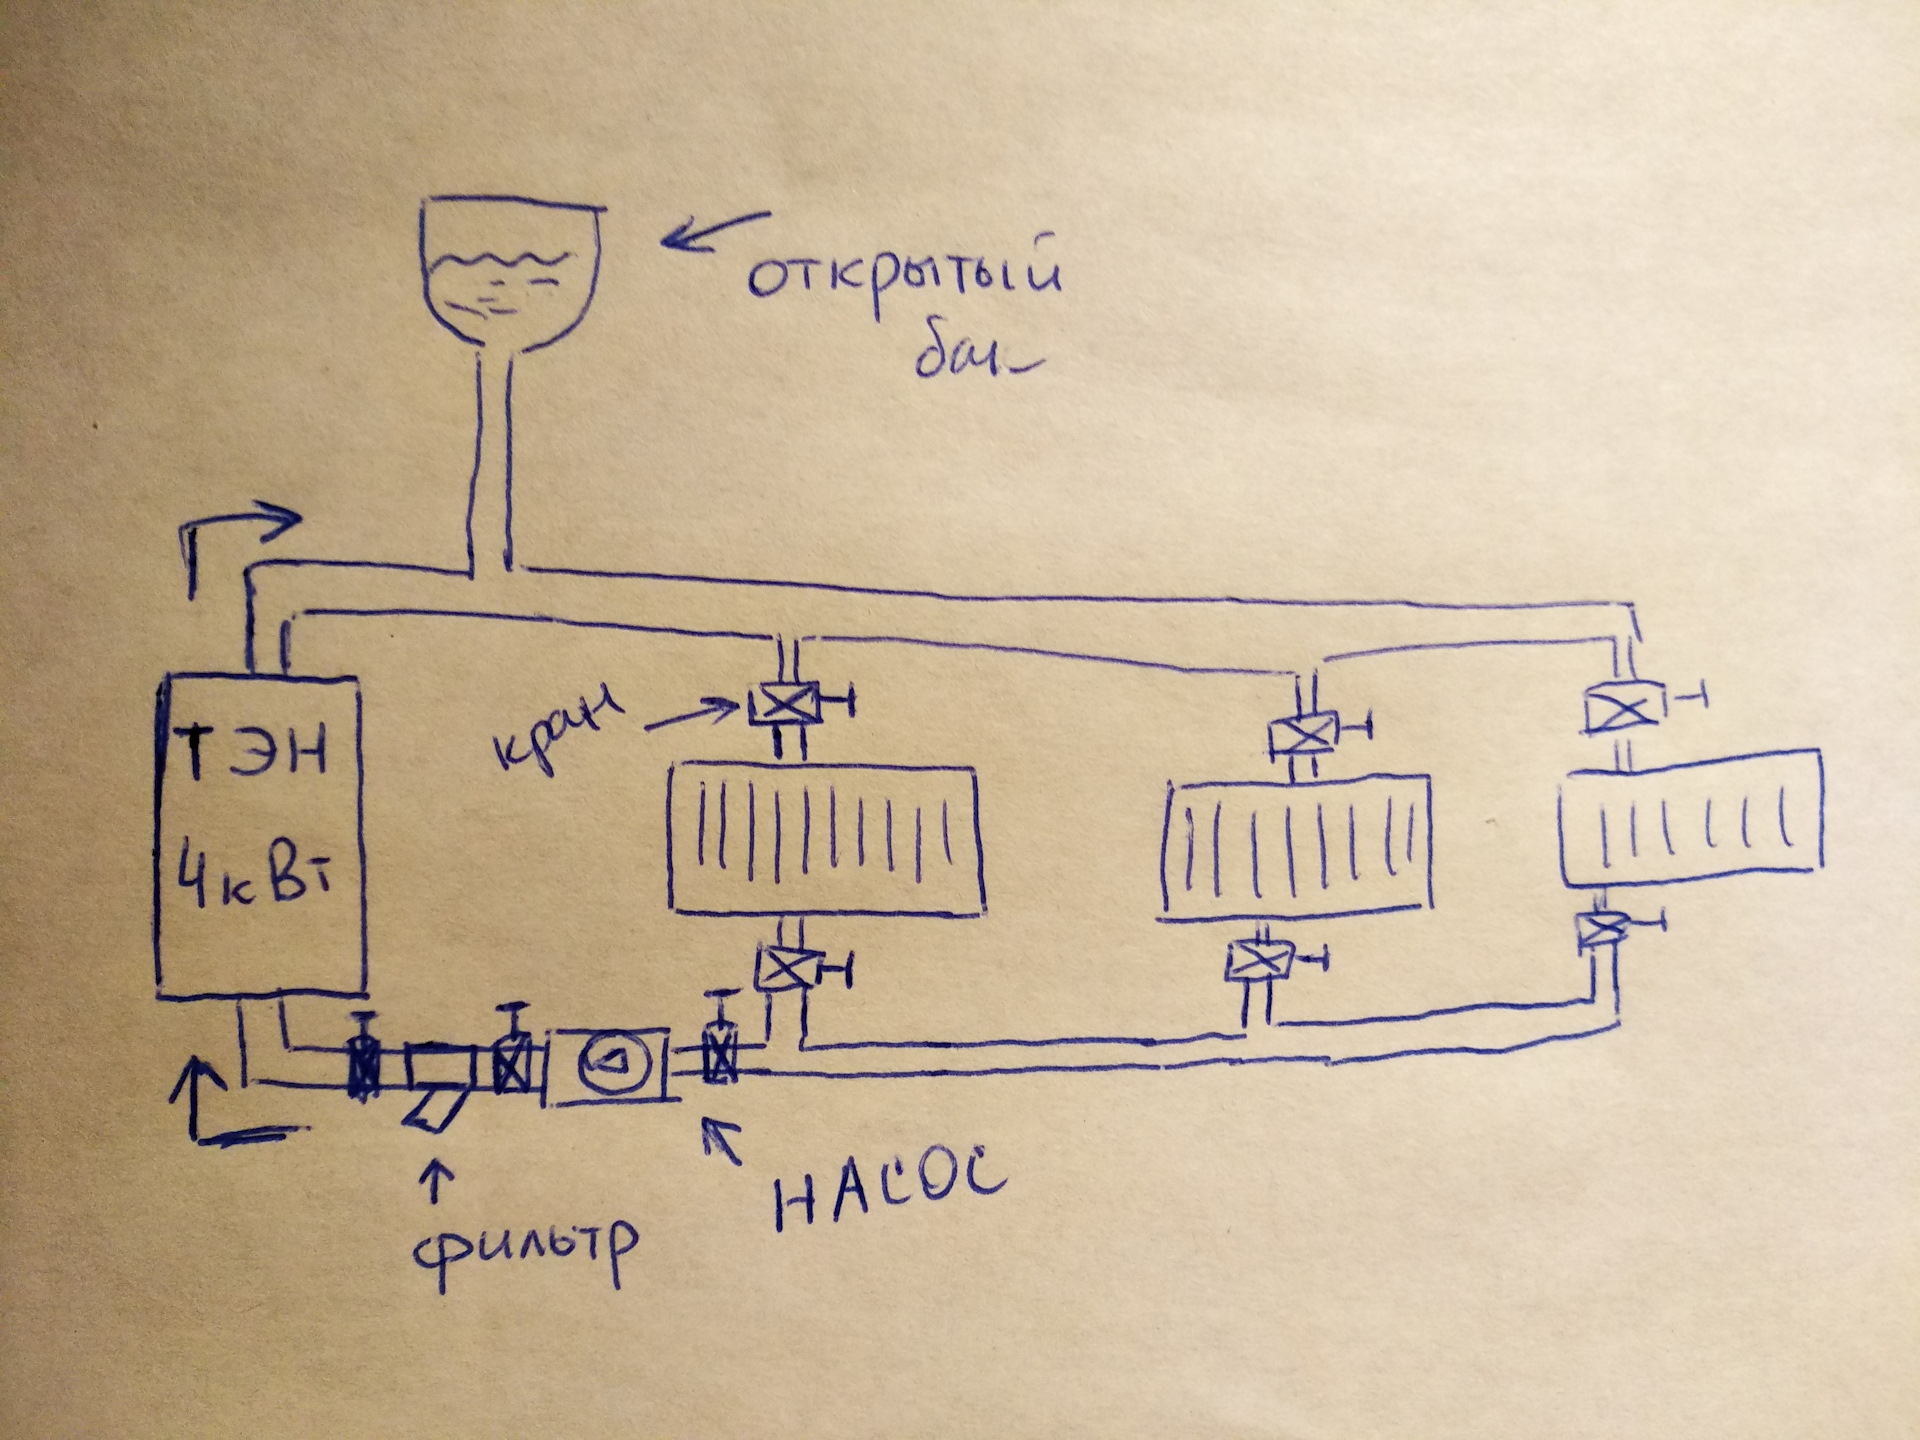 открытый
бак
кран
ТЭН
4кВт
НАСОС
фильтр